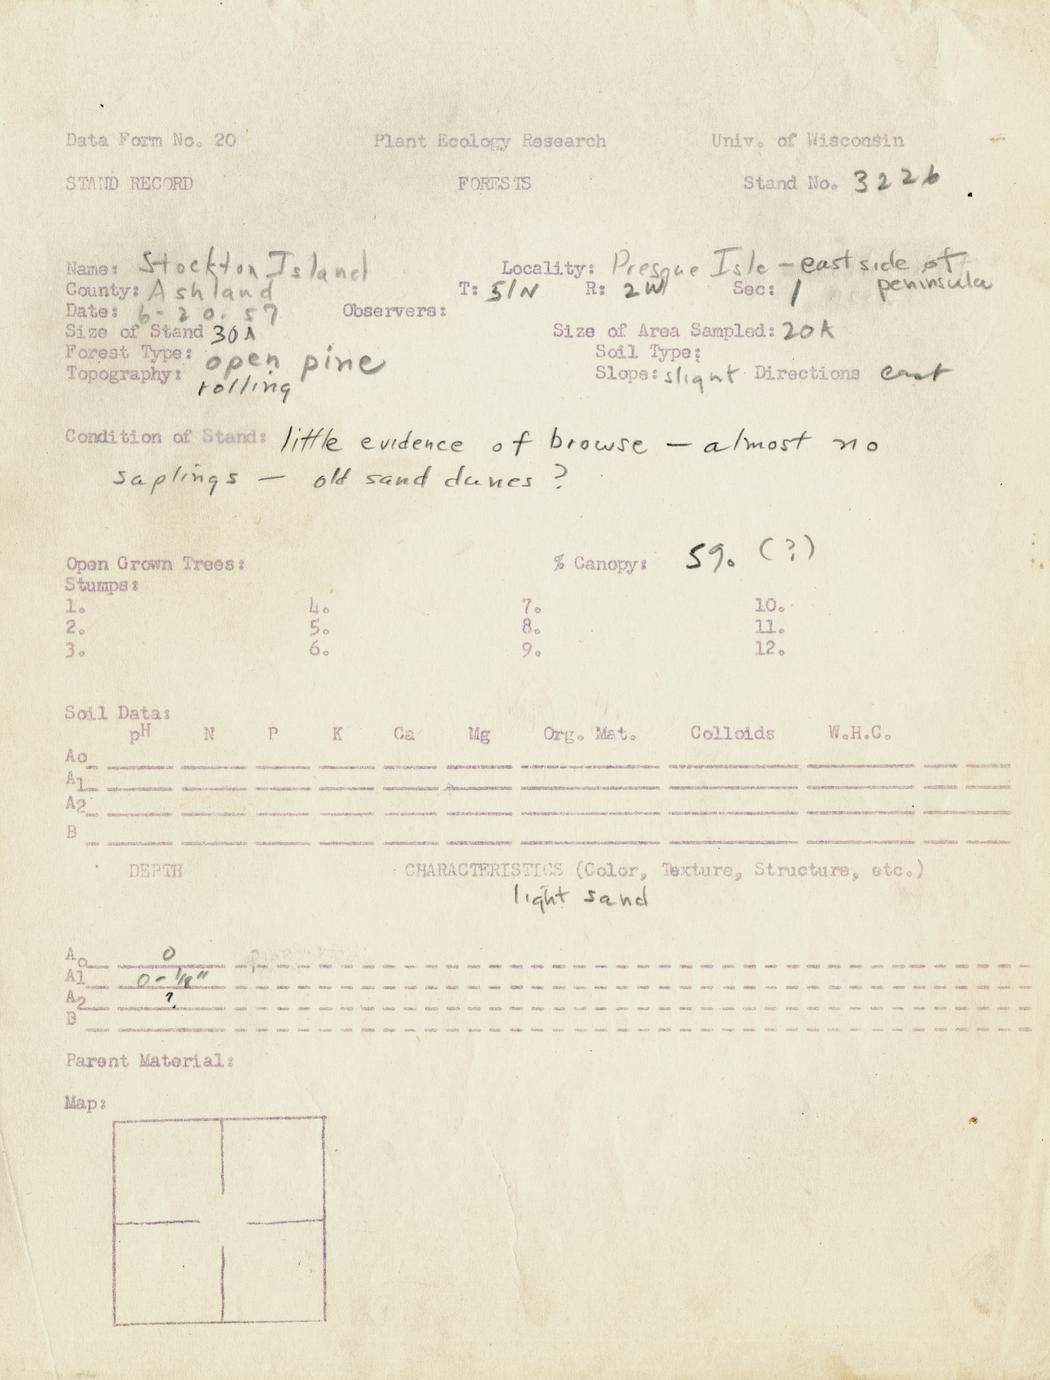 Data Form No. 20 Plant Ecology Research Univ. of Wisconsin
STAND RECORD FORESTS Stand No. 3226
Name: Stockton Island Locality: Presque Isle - east side of peninsula
County: Ashland T: 51N R: 2W Sec: 1
Date: 6-20-57 Observers:
Size of Stand 30A Size of Area Sampled: 20A
Forest Type: open pine Soil Type:
Topography: rolling Slope: slight Directions east
Condition of Stand: little evidence of browse — almost no
saplings — old sand dunes ?
Open Grown Trees: % Canopy: 5%. (?)
Stumps:
1. 4. 7. 10.
2. 5. 8. 11.
3. 6. 9. 12.
Soil Data:
pH N P K Ca Mg Org. Mat. Colloids W.H.C.
Ao
A1
A2
B
DEPTH CHARACTERISTICS (Color, Texture, Structure, etc.)
light sand
Ao 0
A1 0 - 1/8"
A2 ?
B
Parent Material:
Map: